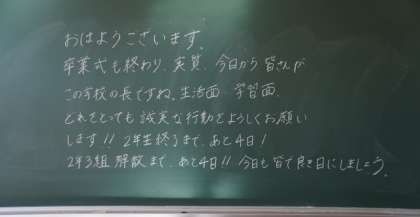 おはようございます。
卒業式も終わり、実質、今日から皆さんが
この学校の長ですね。生活面、学習面、
どれをとっても誠実な行動をよろしくお願い
します!! 2年生終了まで、あと4日!
2年3組 解散まで、あと4日!! 今日も皆で良き日にしましょう。